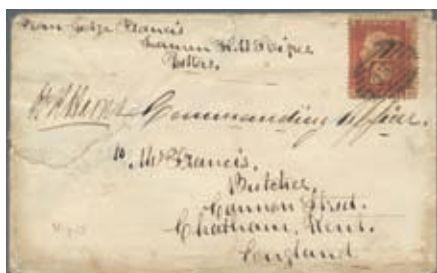 From George Francis
Seaman H.M.S
Commanding Officer.
to Mr Francis.
Butcher,
Cannon Street.
Chatham, Kent.
England